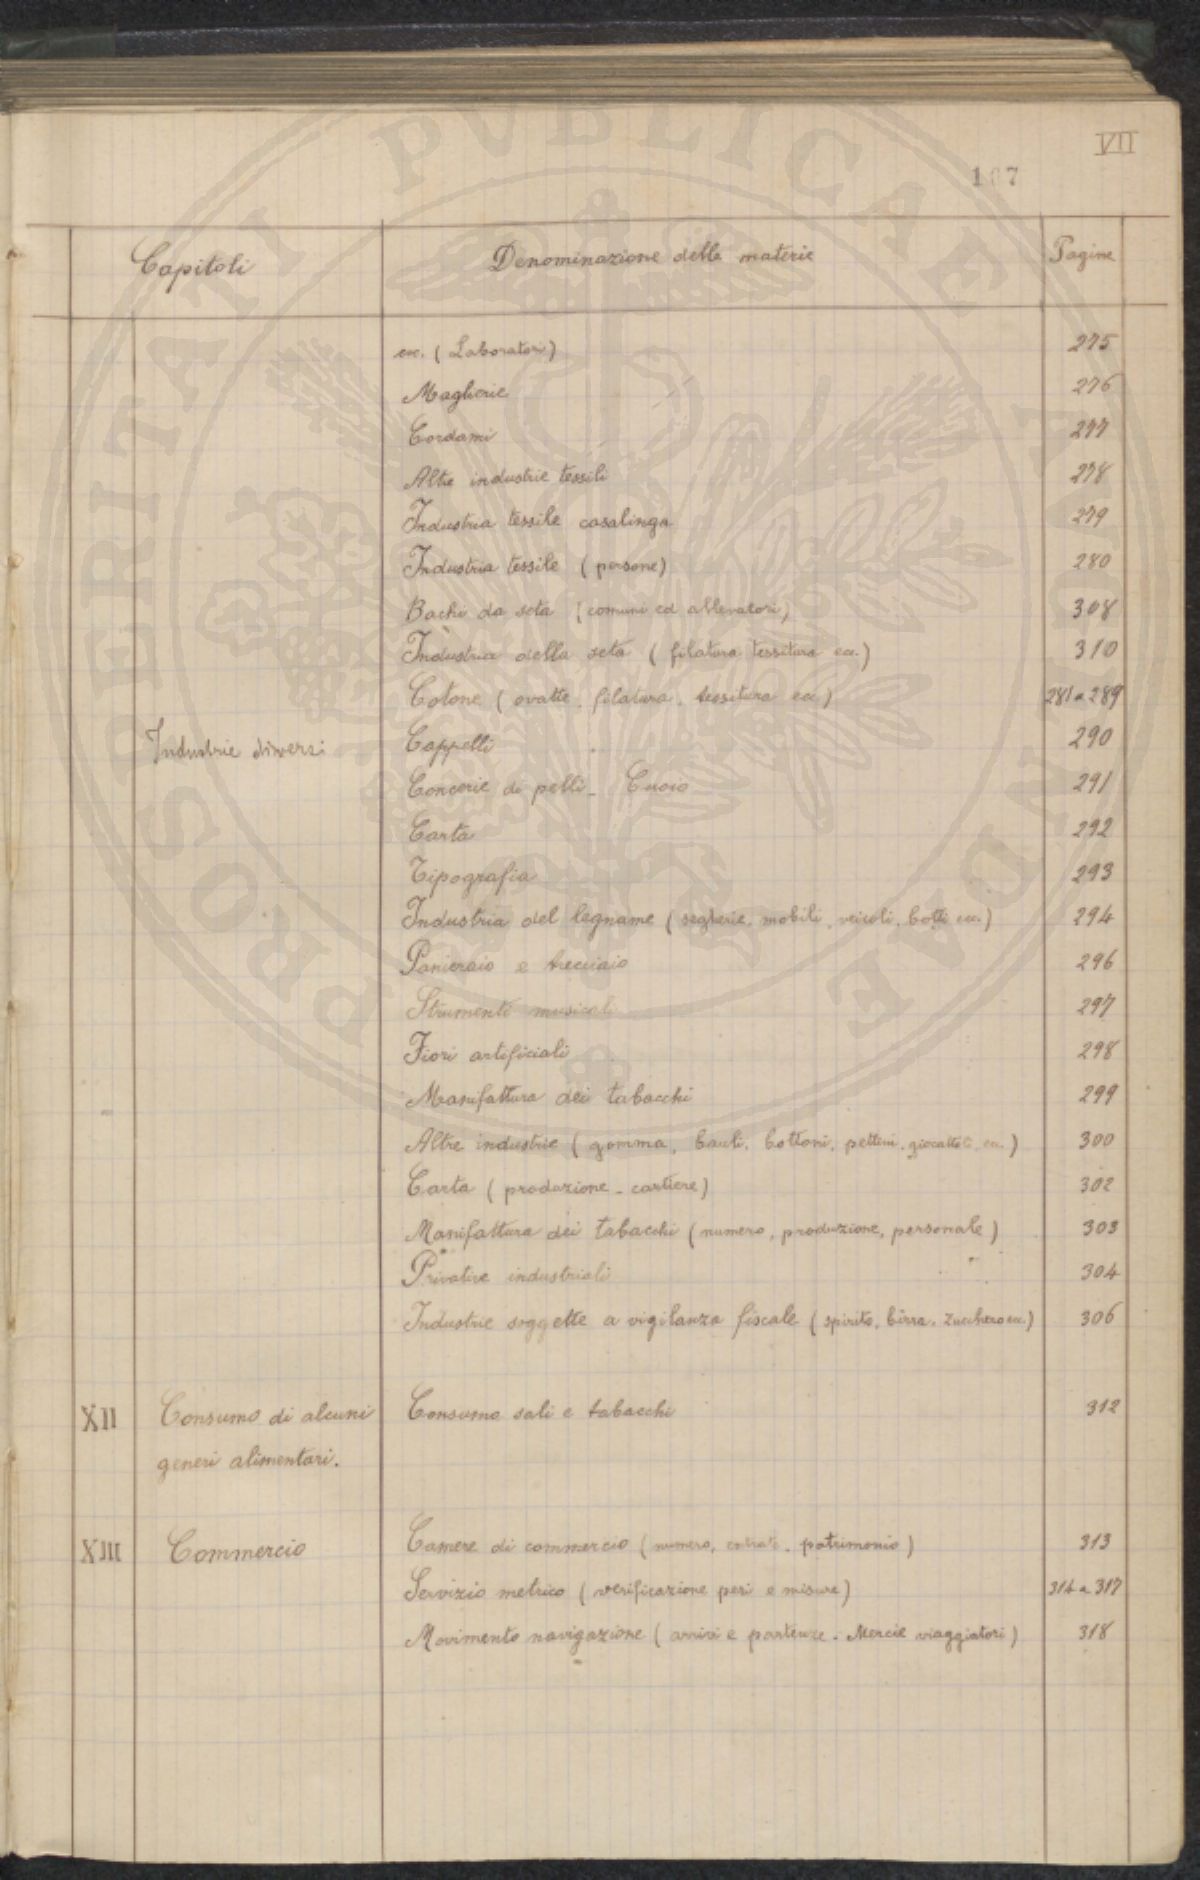 VII
107
Capitoli Denominazione delle materie Pagine
ecc. (Laboratori) 275
Maglierie 276
Cordami 277
Altre industrie tessili 278
Industria tessile casalinga 279
Industria tessile (persone) 280
Bachi da seta (comuni ed allevatori) 308
Industria della seta (filatura tessitura ecc.) 310
Cotone (ovatte, filatura, tessitura ecc.) 281 a 289
Industrie diversi Cappelli 290
Concerie di pelli - Cuoio 291
Carta 292
Tipografia 293
Industria del legname (segherie, mobili, veicoli, botti ecc.) 294
Panieraio e trecciaio 296
Strumenti musicali 297
Fiori artificiali 298
Manifattura dei tabacchi 299
Altre industrie (gomma, bauli, bottoni, pettini, giocattoli, ecc.) 300
Carta (produzione - cartiere) 302
Manifattura dei tabacchi (numero, produzione, personale) 303
Privative industriali 304
Industrie soggette a vigilanza fiscale (spirito, birra, zucchero ecc.) 306
XII Consumo di alcuni Consumo sali e tabacchi 312
generi alimentari.
XIII Commercio Camere di commercio (numero, entrate, patrimonio) 313
Servizio metrico (verificazione pesi e misure) 314 a 317
Movimento navigazione (arrivi e partenze. Mercie viaggiatori) 318
PROSPERITATI PUBLICAE AUGENDAE